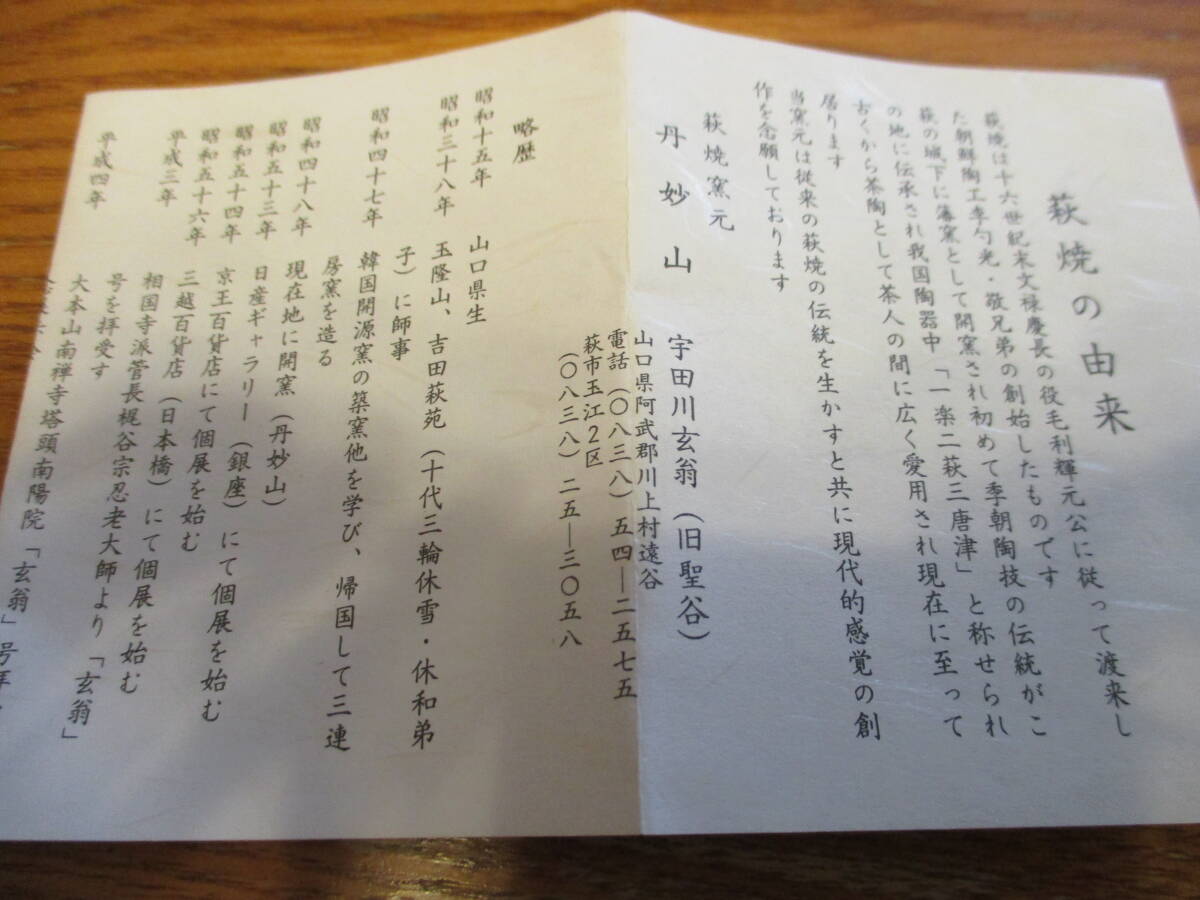 萩焼の由来
萩焼は十六世紀末文禄慶長の役毛利輝元公に従って渡来し
た朝鮮陶工李勺光・敬兄弟の創始したものです
萩の城下に藩窯として開窯され初めて季朝陶技の伝統がこ
の地に伝承され我国陶器中「一楽二萩三唐津」と称せられ
古くから茶陶として茶人の間に広く愛用され現在に至って
居ります
当窯元は従来の萩焼の伝統を生かすと共に現代的感覚の創
作を念願しております
萩焼窯元
丹妙山 宇田川玄翁（旧聖谷）
山口県阿武郡川上村遠谷
電話（〇八三八）五四―二五七五
萩市玉江２区
（〇八三八）二五―三〇五八
略歴
昭和十五年 山口県生
昭和三十八年 玉隆山、吉田萩苑（十代三輪休雪・休和弟
子）に師事
昭和四十七年 韓国開源窯の築窯他を学び、帰国して三連
房窯を造る
昭和四十八年 現在地に開窯（丹妙山）
昭和五十三年 日産ギャラリー（銀座）にて個展を始む
昭和五十四年 京王百貨店にて個展を始む
昭和五十六年 三越百貨店（日本橋）にて個展を始む
平成三年 相国寺派管長梶谷宗忍老大師より「玄翁」
号を拝受す
平成四年 大本山南禅寺塔頭南陽院「玄翁」号拝